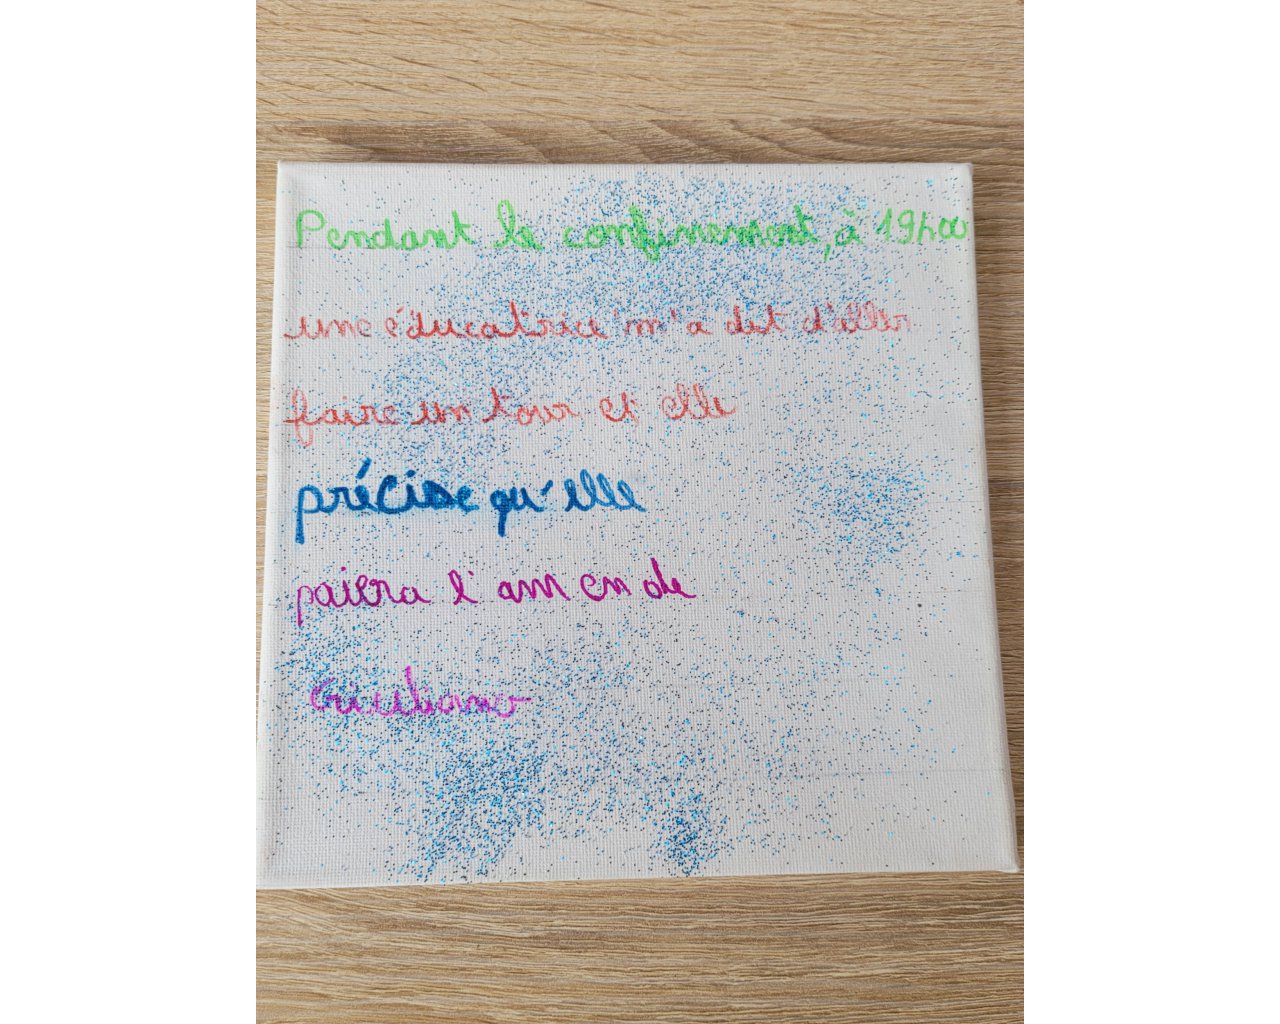 Pendant le confinement, à 19h00
une éducatrice m'a dit d'aller
faire un tour et elle
précise qu'elle
paiera l'am en de